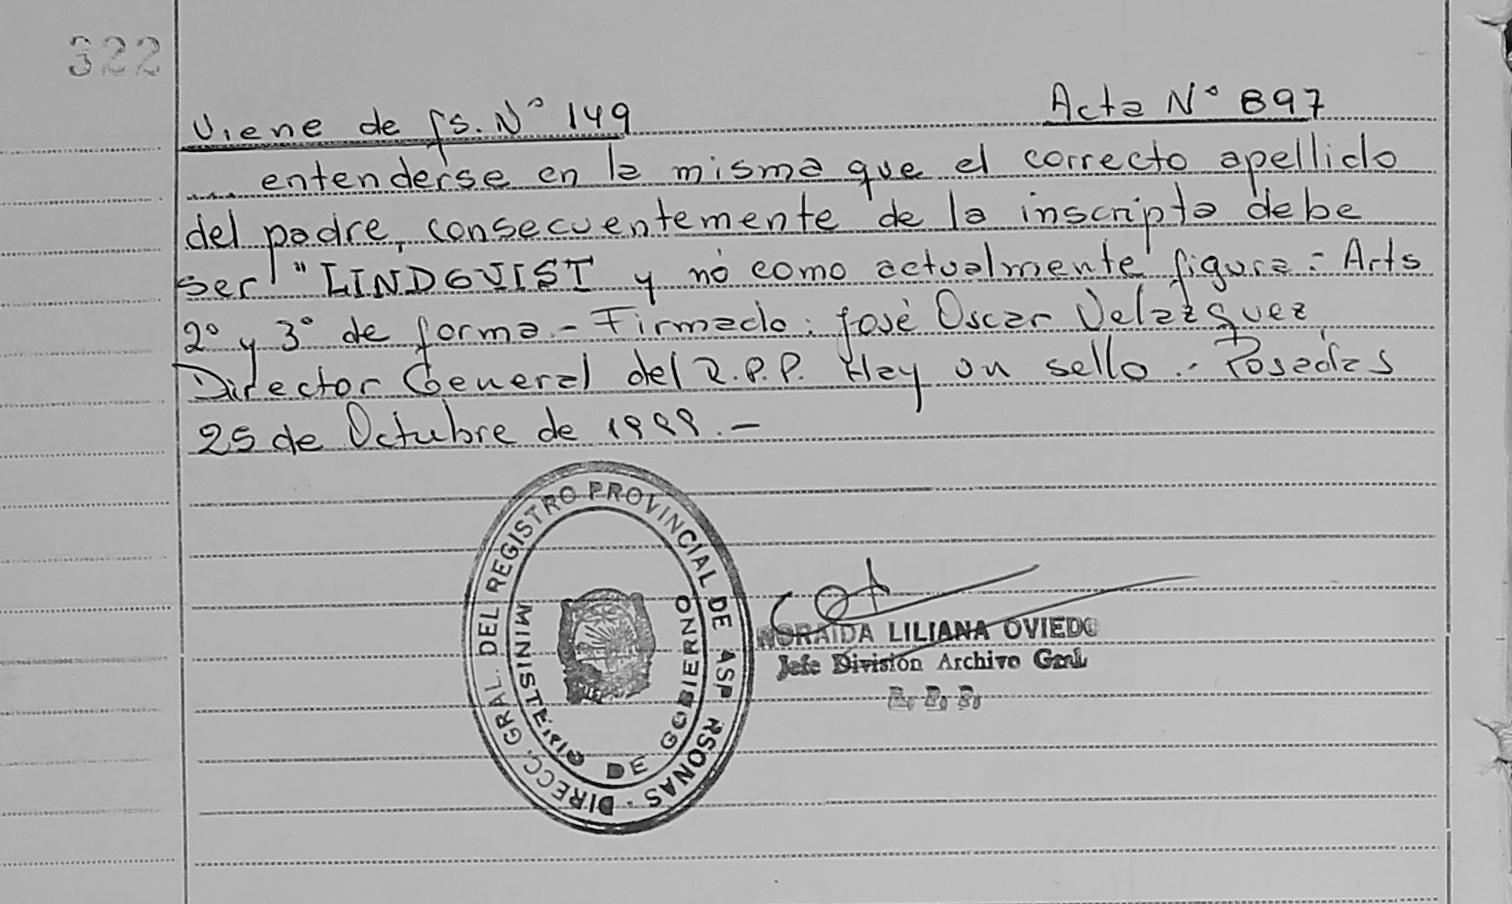 322
Viene de fs. N° 149
Acta N° 897
.... entenderse en la misma que el correcto apellido
del padre, consecuentemente de la inscripta debe
ser "LINDQVIST y no como actualmente figura - Arts
2° y 3° de forma.- Firmado: José Oscar Velazquez
Director General del R.P.P. Hay un sello .- Posadas
25 de Octubre de 1999.-
DIRECC. GRAL. DEL REGISTRO PROVINCIAL DE ASP RSONAS -
MINISTERIO DE GOBIERNO
NORAIDA LILIANA OVIEDO
Jefe División Archivo Gral.
R. P. P.